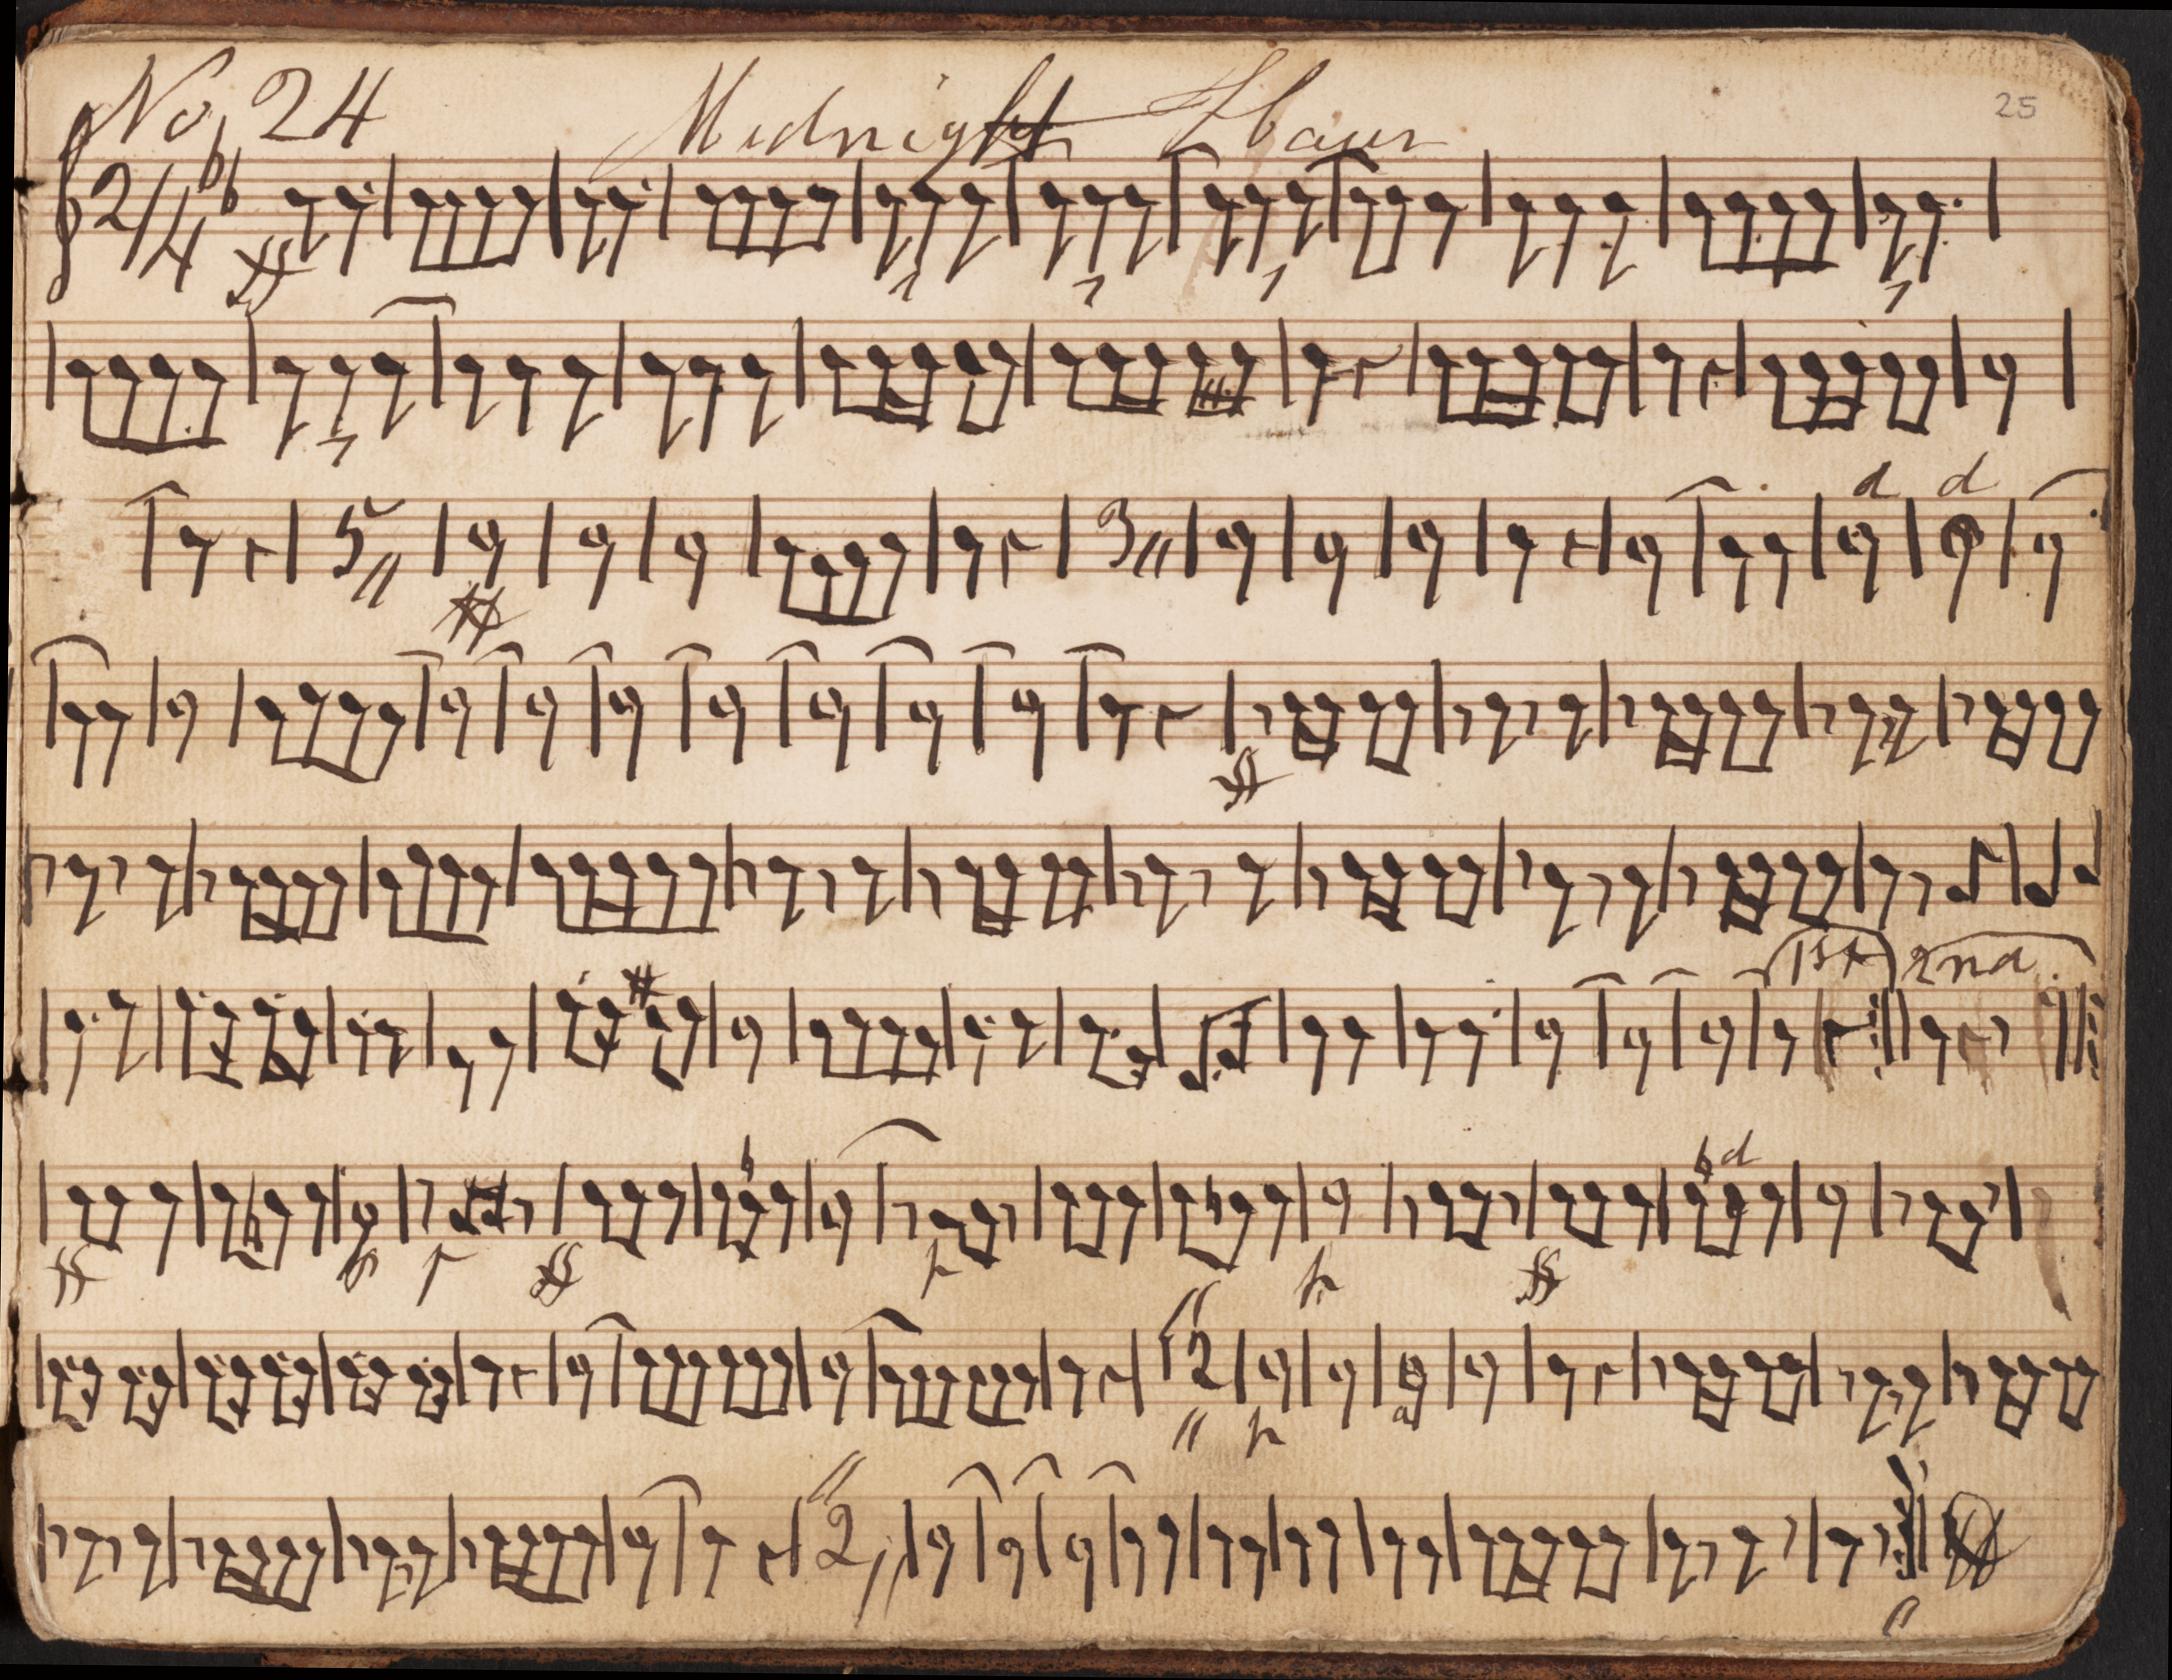 No, 24 Midnight Hour 25
2/4
5
3 d d
1st 2nd
d
12
a
2